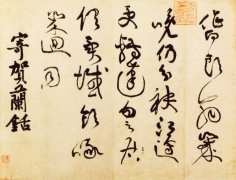 作白頭翁歲
晚仍分袂江邊
更轉蓬勿言
俱異域飲啄
幾回同
寄賀蘭銛